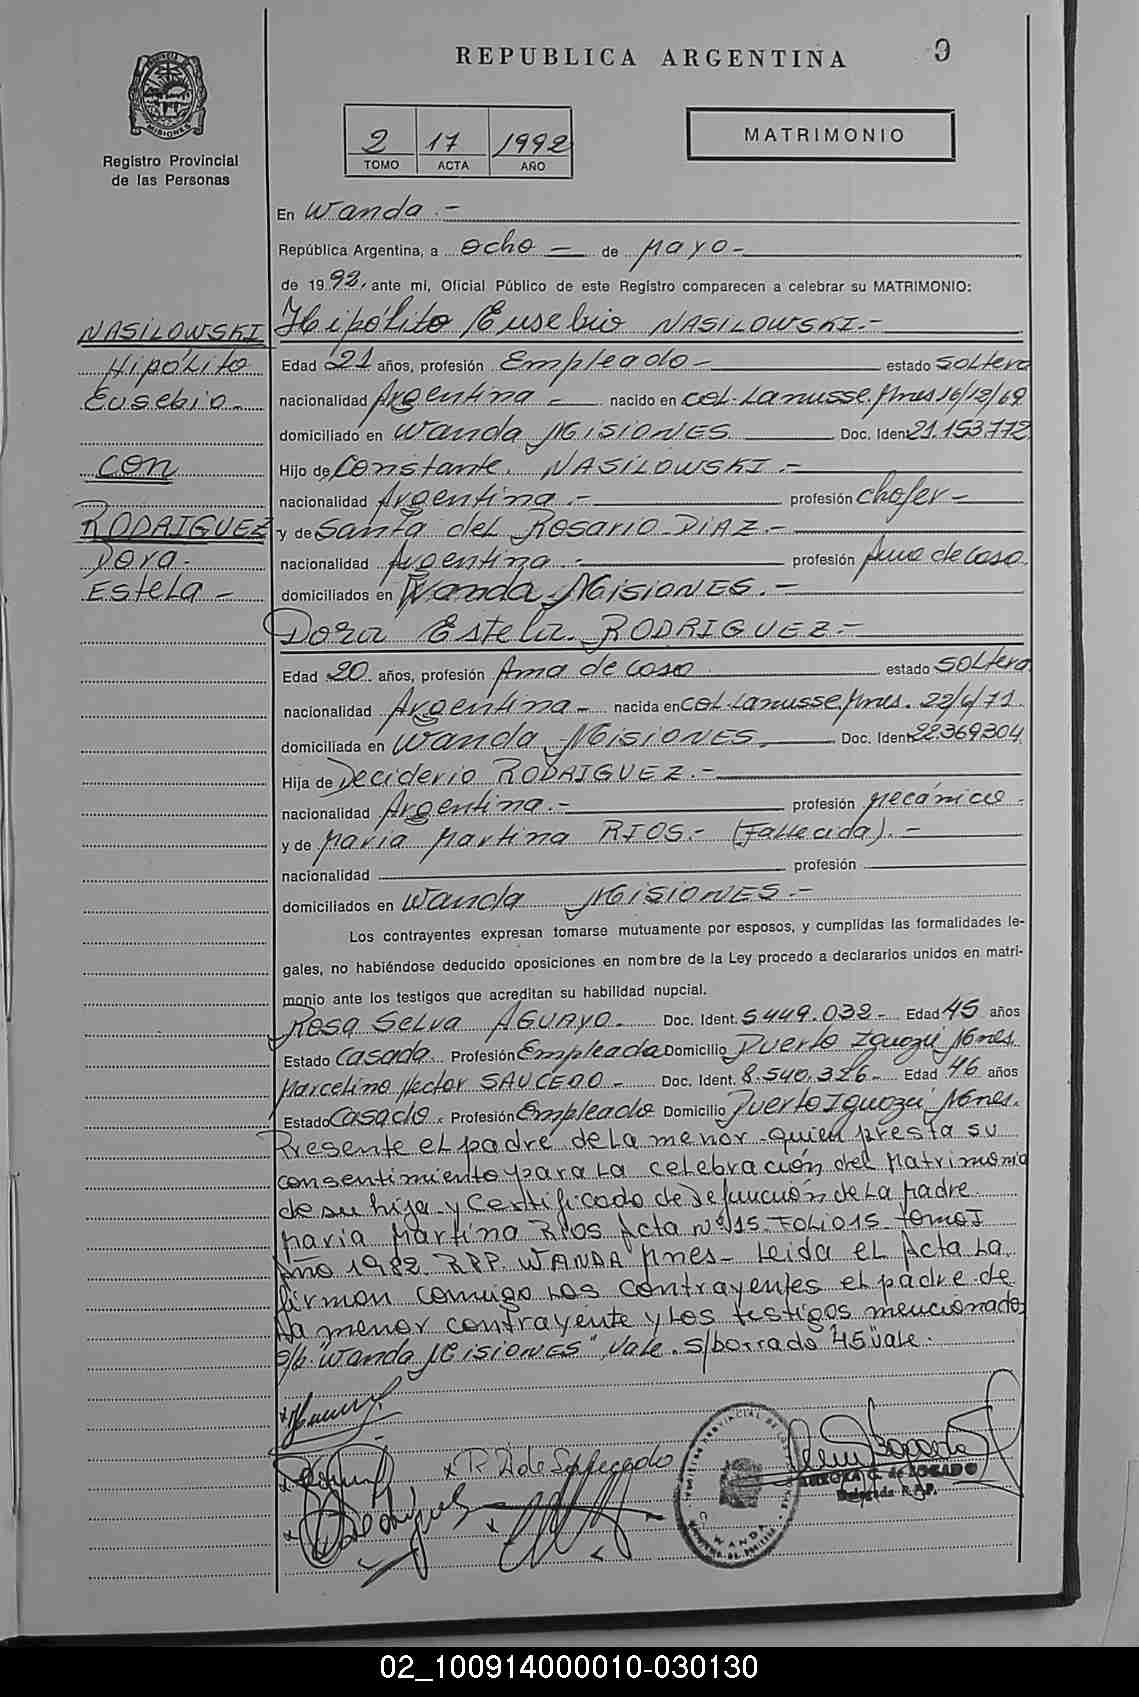 REPUBLICA ARGENTINA
9
MISIONES
Registro Provincial
de las Personas
2 17 1992
TOMO ACTA AÑO
MATRIMONIO
En Wanda.-
República Argentina, a ocho — de Mayo-
de 1992, ante mi, Oficial Público de este Registro comparecen a celebrar su MATRIMONIO:
NASILOWSKI
Hipólito
Eusebio-
con
RODRIGUEZ
Dora-
Estela-
Hipólito Eusebio NASILOWSKI.-
Edad 21 años, profesión Empleado- estado Soltero
nacionalidad Argentina- nacido en Col. Lanusse. Mnes 16/12/69
domiciliado en Wanda MISIONES. Doc. Ident 21.153.772
Hijo de Constante. NASILOWSKI.-
nacionalidad Argentina.- profesión Chofer-
y de Santa del Rosario DIAZ.-
nacionalidad Argentina.- profesión Ama de casa
domiciliados en Wanda MISIONES.-
Dora Estela. RODRIGUEZ-
Edad 20 años, profesión Ama de casa estado Soltera
nacionalidad Argentina- nacida en Col. Lanusse, Mnes. 22/6/71.
domiciliada en Wanda MISIONES. Doc. Ident 22369304
Hija de Deciderio RODRIGUEZ.-
nacionalidad Argentina.- profesión Mecánico-
y de María Martina RIOS.- (Fallecida).-
nacionalidad profesión
domiciliados en Wanda MISIONES.-
Los contrayentes expresan tomarse mutuamente por esposos, y cumplidas las formalidades le-
gales, no habiéndose deducido oposiciones en nombre de la Ley procedo a declararlos unidos en matri-
monio ante los testigos que acreditan su habilidad nupcial.
Rosa Selva AGUAYO- Doc. Ident. 5449.032- Edad 45 años
Estado Casada Profesión Empleada Domicilio Puerto Iguazú Mnes.
Marcelino Hector SAUCEDO- Doc. Ident. 8.540.326- Edad 46 años
Estado Casado. Profesión Empleado Domicilio Puerto Iguazú Mnes.
Presente el padre de la menor quien presta su
consentimiento para la celebración del Matrimonio
de su hija y Certificado de Defunción de la Madre
Maria Martina Rios Acta nº 15. Folio 15 tomo I
Año 1982. RPP. WANDA Mnes- Leida el Acta la
firman conmigo los contrayentes el padre de
la menor contrayente y los testigos mencionados
s/b "Wanda MISIONES", vale. s/borrado "45" vale.
WANDA
AURORA G. de LOBADO
Delegada R.P.P.
02_100914000010-030130